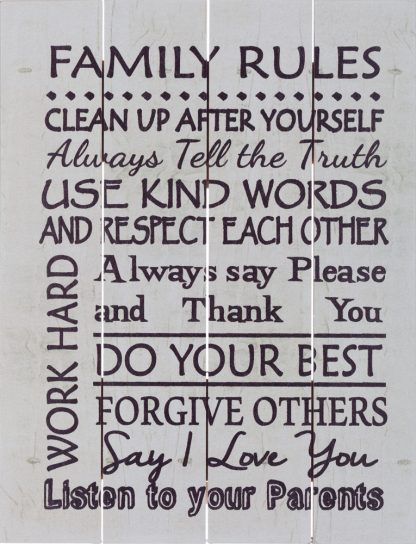 FAMILY RULES
CLEAN UP AFTER YOURSELF
Always Tell the Truth
USE KIND WORDS
AND RESPECT EACH OTHER
WORK HARD
Always say Please
and Thank You
DO YOUR BEST
FORGIVE OTHERS
Say I Love You
Listen to your Parents